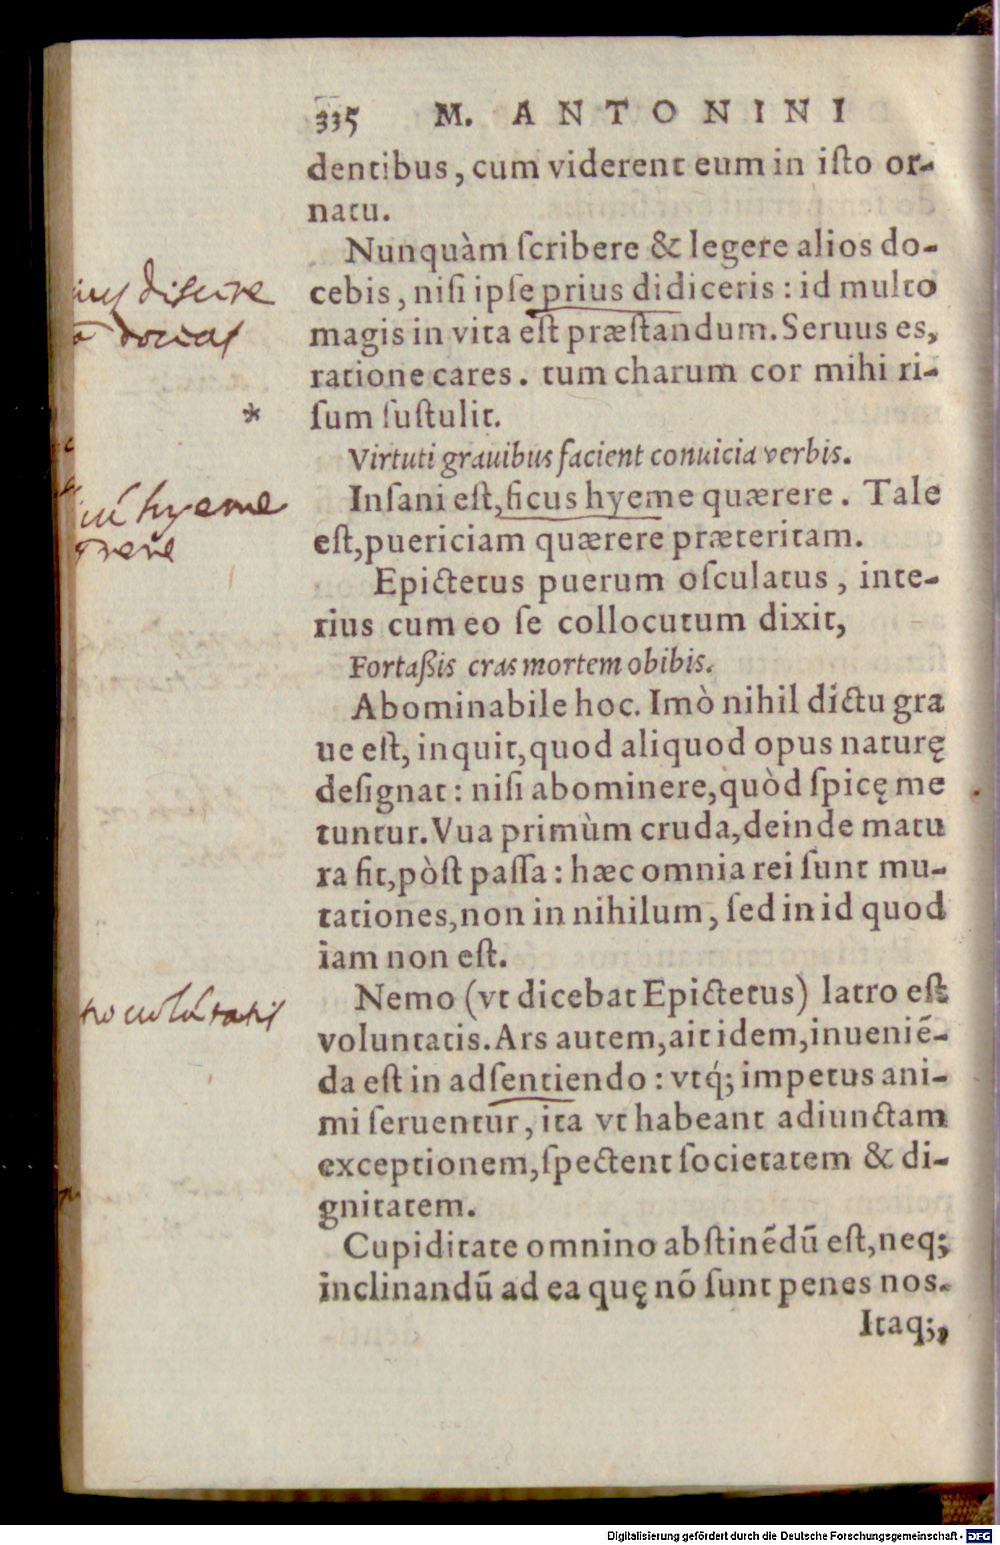 335 M. ANTONINI
dentibus, cum viderent eum in iſto or-
natu.
Nunquàm ſcribere & legere alios do-
cebis, niſi ipſe prius didiceris: id multo
magis in vita eſt præſtandum. Seruus es,
ratione cares. tum charum cor mihi ri-
ſum ſuſtulit.
diſcere
doceas
*
Virtuti grauibus facient conuicia verbis.
Inſani eſt, ficus hyeme quærere. Tale
eſt, puericiam quærere præteritam.
hyeme
Epictetus puerum oſculatus, inte-
rius cum eo ſe collocutum dixit,
Fortaßis cras mortem obibis.
Abominabile hoc. Imò nihil dictu gra
ue eſt, inquit, quod aliquod opus naturę
deſignat: niſi abominere, quòd ſpicę me
tuntur. Vua primùm cruda, deinde matu
ra fit, pòſt paſſa: hæc omnia rei ſunt mu-
tationes, non in nihilum, ſed in id quod
iam non eſt.
Nemo (vt dicebat Epictetus) latro eſt
voluntatis. Ars autem, ait idem, inueniẽ-
da eſt in adſentiendo: vtq́; impetus ani-
mi ſeruentur, ita vt habeant adiunctam
exceptionem, ſpectent ſocietatem & di-
gnitatem.
Cupiditate omnino abſtinẽdũ eſt, neq;
inclinandũ ad ea quę nõ ſunt penes nos.
Itaq;,
Digitalisierung gefördert durch die Deutsche Forschungsgemeinschaft - DFG